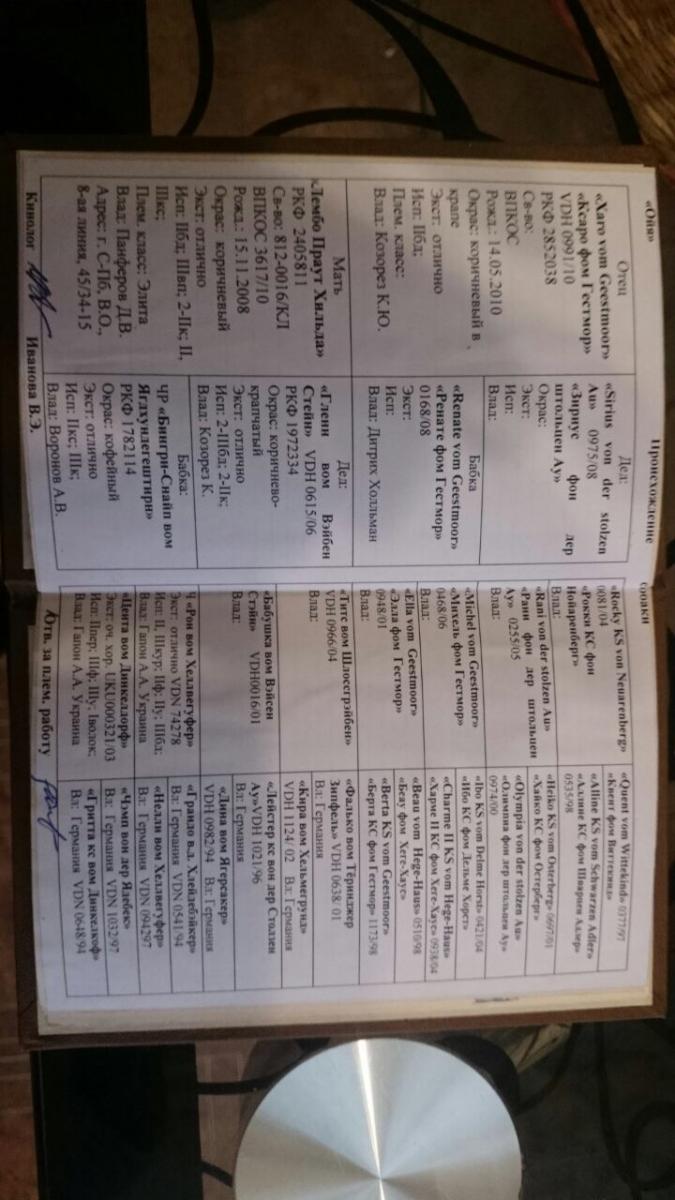 Происхождение
собаки
«Оня»
Отец
«Xaro vom Geestmoor»
«Ксаро фом Гестмор»
VDH 0991/10
РКФ 2852038
Св-во:
ВПКОС
Рожд.: 14.05.2010
Окрас: коричневый в
крапе
Экст: отлично
Исп: IIбд;
Плем. класс:
Влад: Козорез К.Ю.
Мать
«Лембо Праут Хильда»
РКФ 2405811
Св-во: 812-0016/КЛ
ВПКОС 3617/10
Рожд.: 15.11.2008
Окрас: коричневый
Экст: отлично
Исп: IIбд; IIIвп; 2-IIк; II,
IIIкс;
Плем. класс: Элита
Влад: Панферов Д.В.
Адрес: г. С-Пб, В.О.,
8-ая линия, 45/34-15
Кинолог
Иванова В.Э.
Дед:
«Sirius von der stolzen
Au» 0975/08
«Зириус фон дер
штольцен Ау»
Окрас:
Экст:
Исп:
Влад:
Бабка
«Renate vom Geestmoor»
«Ренате фом Гестмор»
0168/08
Экст:
Исп:
Влад: Дитрих Холльман
Дед:
«Гленн вом Вэйбен
Стейн» VDH 0615/06
РКФ 1972334
Окрас: коричнево-
крапчатый
Экст: отлично
Исп: 2-IIIбд; 2-IIк;
Влад: Козорез К.
Бабка:
ЧР «Бингри-Снайп вом
Ягдхундегештирн»
РКФ 1782114
Окрас: кофейный
Экст: отлично
Исп: IIкс; IIIк;
Влад: Воронов А.В.
«Rocky KS von Neuarenberg»
0081/04
«Рокки КС фон
Нойаренберг»
Влад:
«Rani von der stolzen Au»
«Рани фон дер штольцен
Ау» 0255/05
Влад:
«Michel vom Geestmoor»
«Михель фом Гестмор»
0468/06
Влад:
«Ella vom Geestmoor»
«Элла фом Гестмор»
0948/01
Влад:
«Титс вом Шлоссгрэйбен»
VDH 0966/04
Влад:
«Бабушка вом Вэйсен
Стэйн» VDH0016/01
Влад:
Ч «Рон вом Хеллвегуфер»
Экст: отлично VDN 74278
Исп: II, IIIкур; IIф; IIу; IIIбд;
Влад: Гапон А.А. Украина
«Цента вом Динкелдорф»
Экст: оч. хор. UKU000321/03
Исп: IIпер; IIIф; IIIу; Iволок;
Влад: Гапон А.А. Украина
Отв. за плем. работу
«Quent vom Wittekind» 0377/97
«Квент фом Виттекинд»
«Alline KS vom Schwarzen Adler»
«Аллине КС фом Шварцен Адлер»
0535/98
«Heiko KS vom Osterberg» 0697/01
«Хайко КС фом Остерберг»
«Olympia von der stolzen Au»
«Олимпиа фон дер штольцен Ау»
0974/00
«Ibo KS vom Delme Horst» 0421/04
«Ибо КС фом Дельме Хорст»
«Charme II KS vom Hege-Haus»
«Харме II КС фом Хеге-Хаус» 0938/04
«Beau vom Hege-Haus» 0510/98
«Беау фом Хеге-Хаус»
«Berta KS vom Geestmoor»
«Берта КС фом Гестмор» 1173/98
«Фалько вом Тёринджер
Зипфель» VDH 0638/01
Вл: Германия
«Кира вом Хельмегрунд»
VDH 1124/ 02 Вл: Германия
«Лейстер кс вон дер Столзен
Ау»VDH 1021/96
Вл: Германия
«Дина вом Ягерсакер»
VDH 0982/94 Вл: Германия
«Грандо в.д. Хлейдеблйакер»
Вл: Германия VDN 0541/94
«Нелли вом Хеллвегуфер»
Вл: Германия VDN 094297
«Чэмп вон дер Ядебек»
Вл: Германия VDN 1032/97
«Гритта кс вом Динкелкоф»
Вл: Германия VDN 0648/94